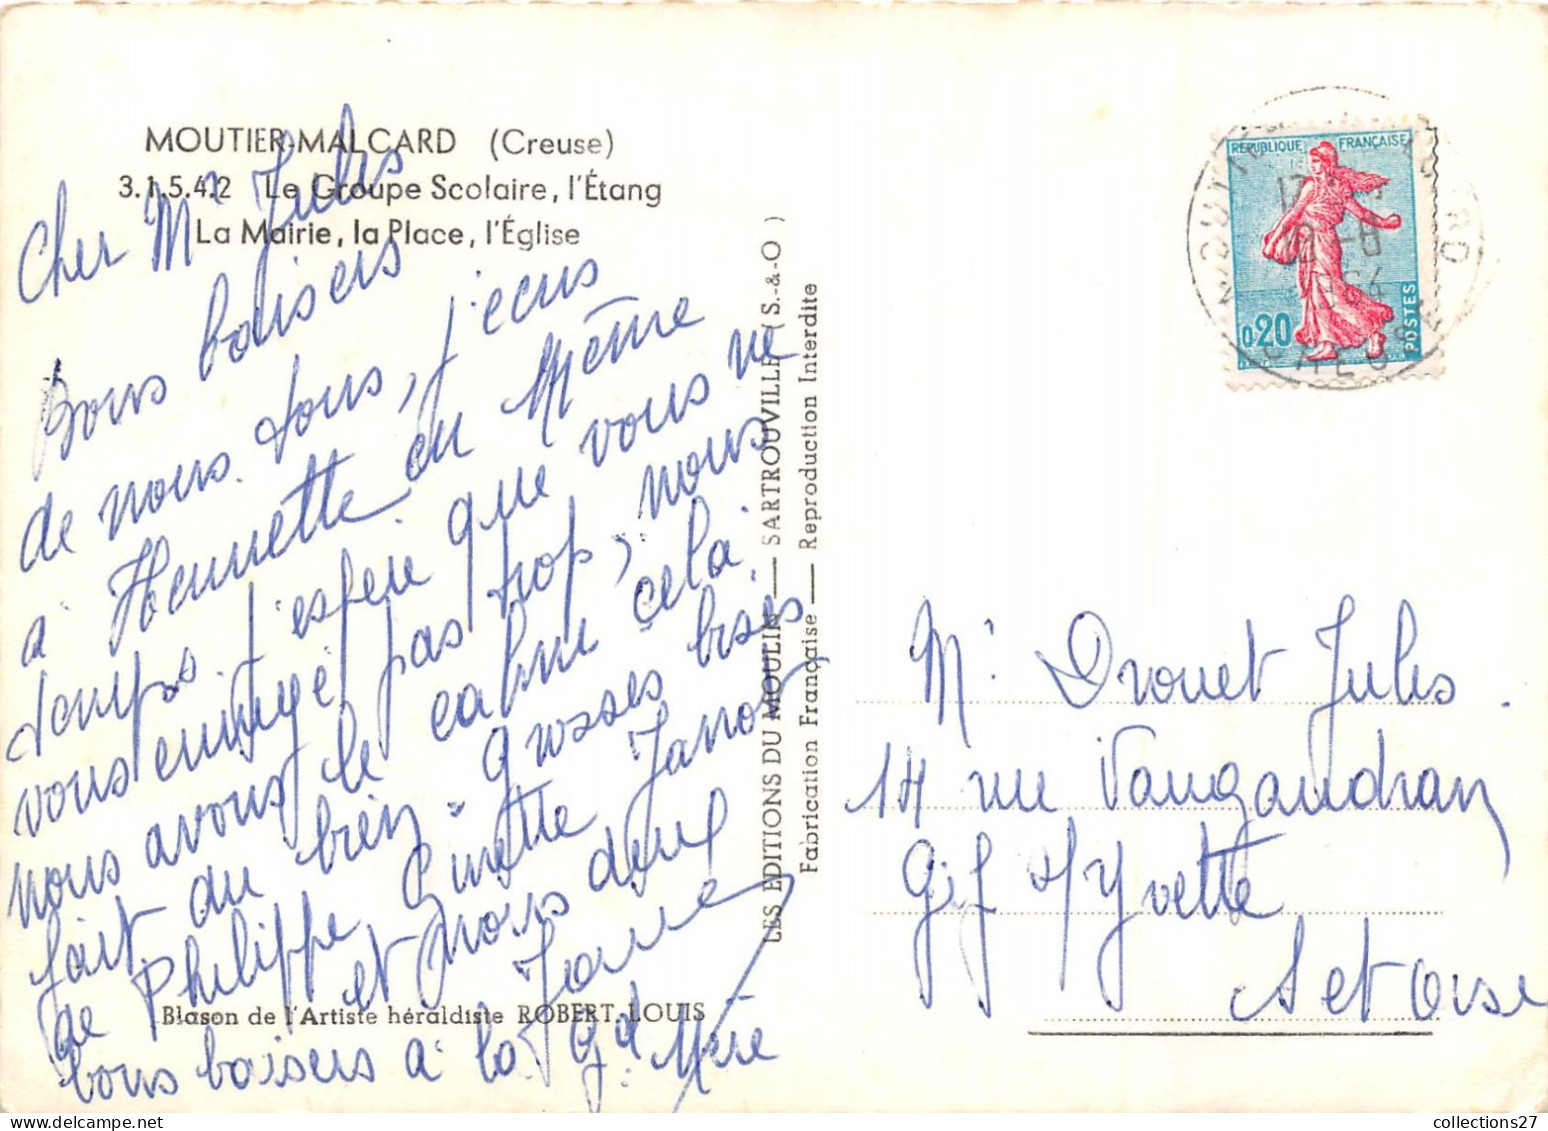 MOUTIER-MALCARD (Creuse)
3.1.5.4.2 Le Groupe Scolaire, l'Étang
La Mairie, la Place, l'Église
Cher Mr Jules
Bons baisers
de nous tous, j'ecris
a Henriette en Même
temps. j'espere que vous ne
vous ennuyé pas trop, nous
nous avons le calme cela
fait du bien. Grosses bises
de Philippe Ginette
et nous deux
bons baisers à la Gd Mère
Blason de l'Artiste héraldiste ROBERT LOUIS
LES EDITIONS DU MOULIN — SARTROUVILLE (S.-&-O)
Fabrication Française — Reproduction Interdite
REPUBLIQUE FRANÇAISE
0,20
POSTES
Mr Drouet Jules.
14 rue Vaugaudran
Gif s/Yvette
S et Oise
collections27